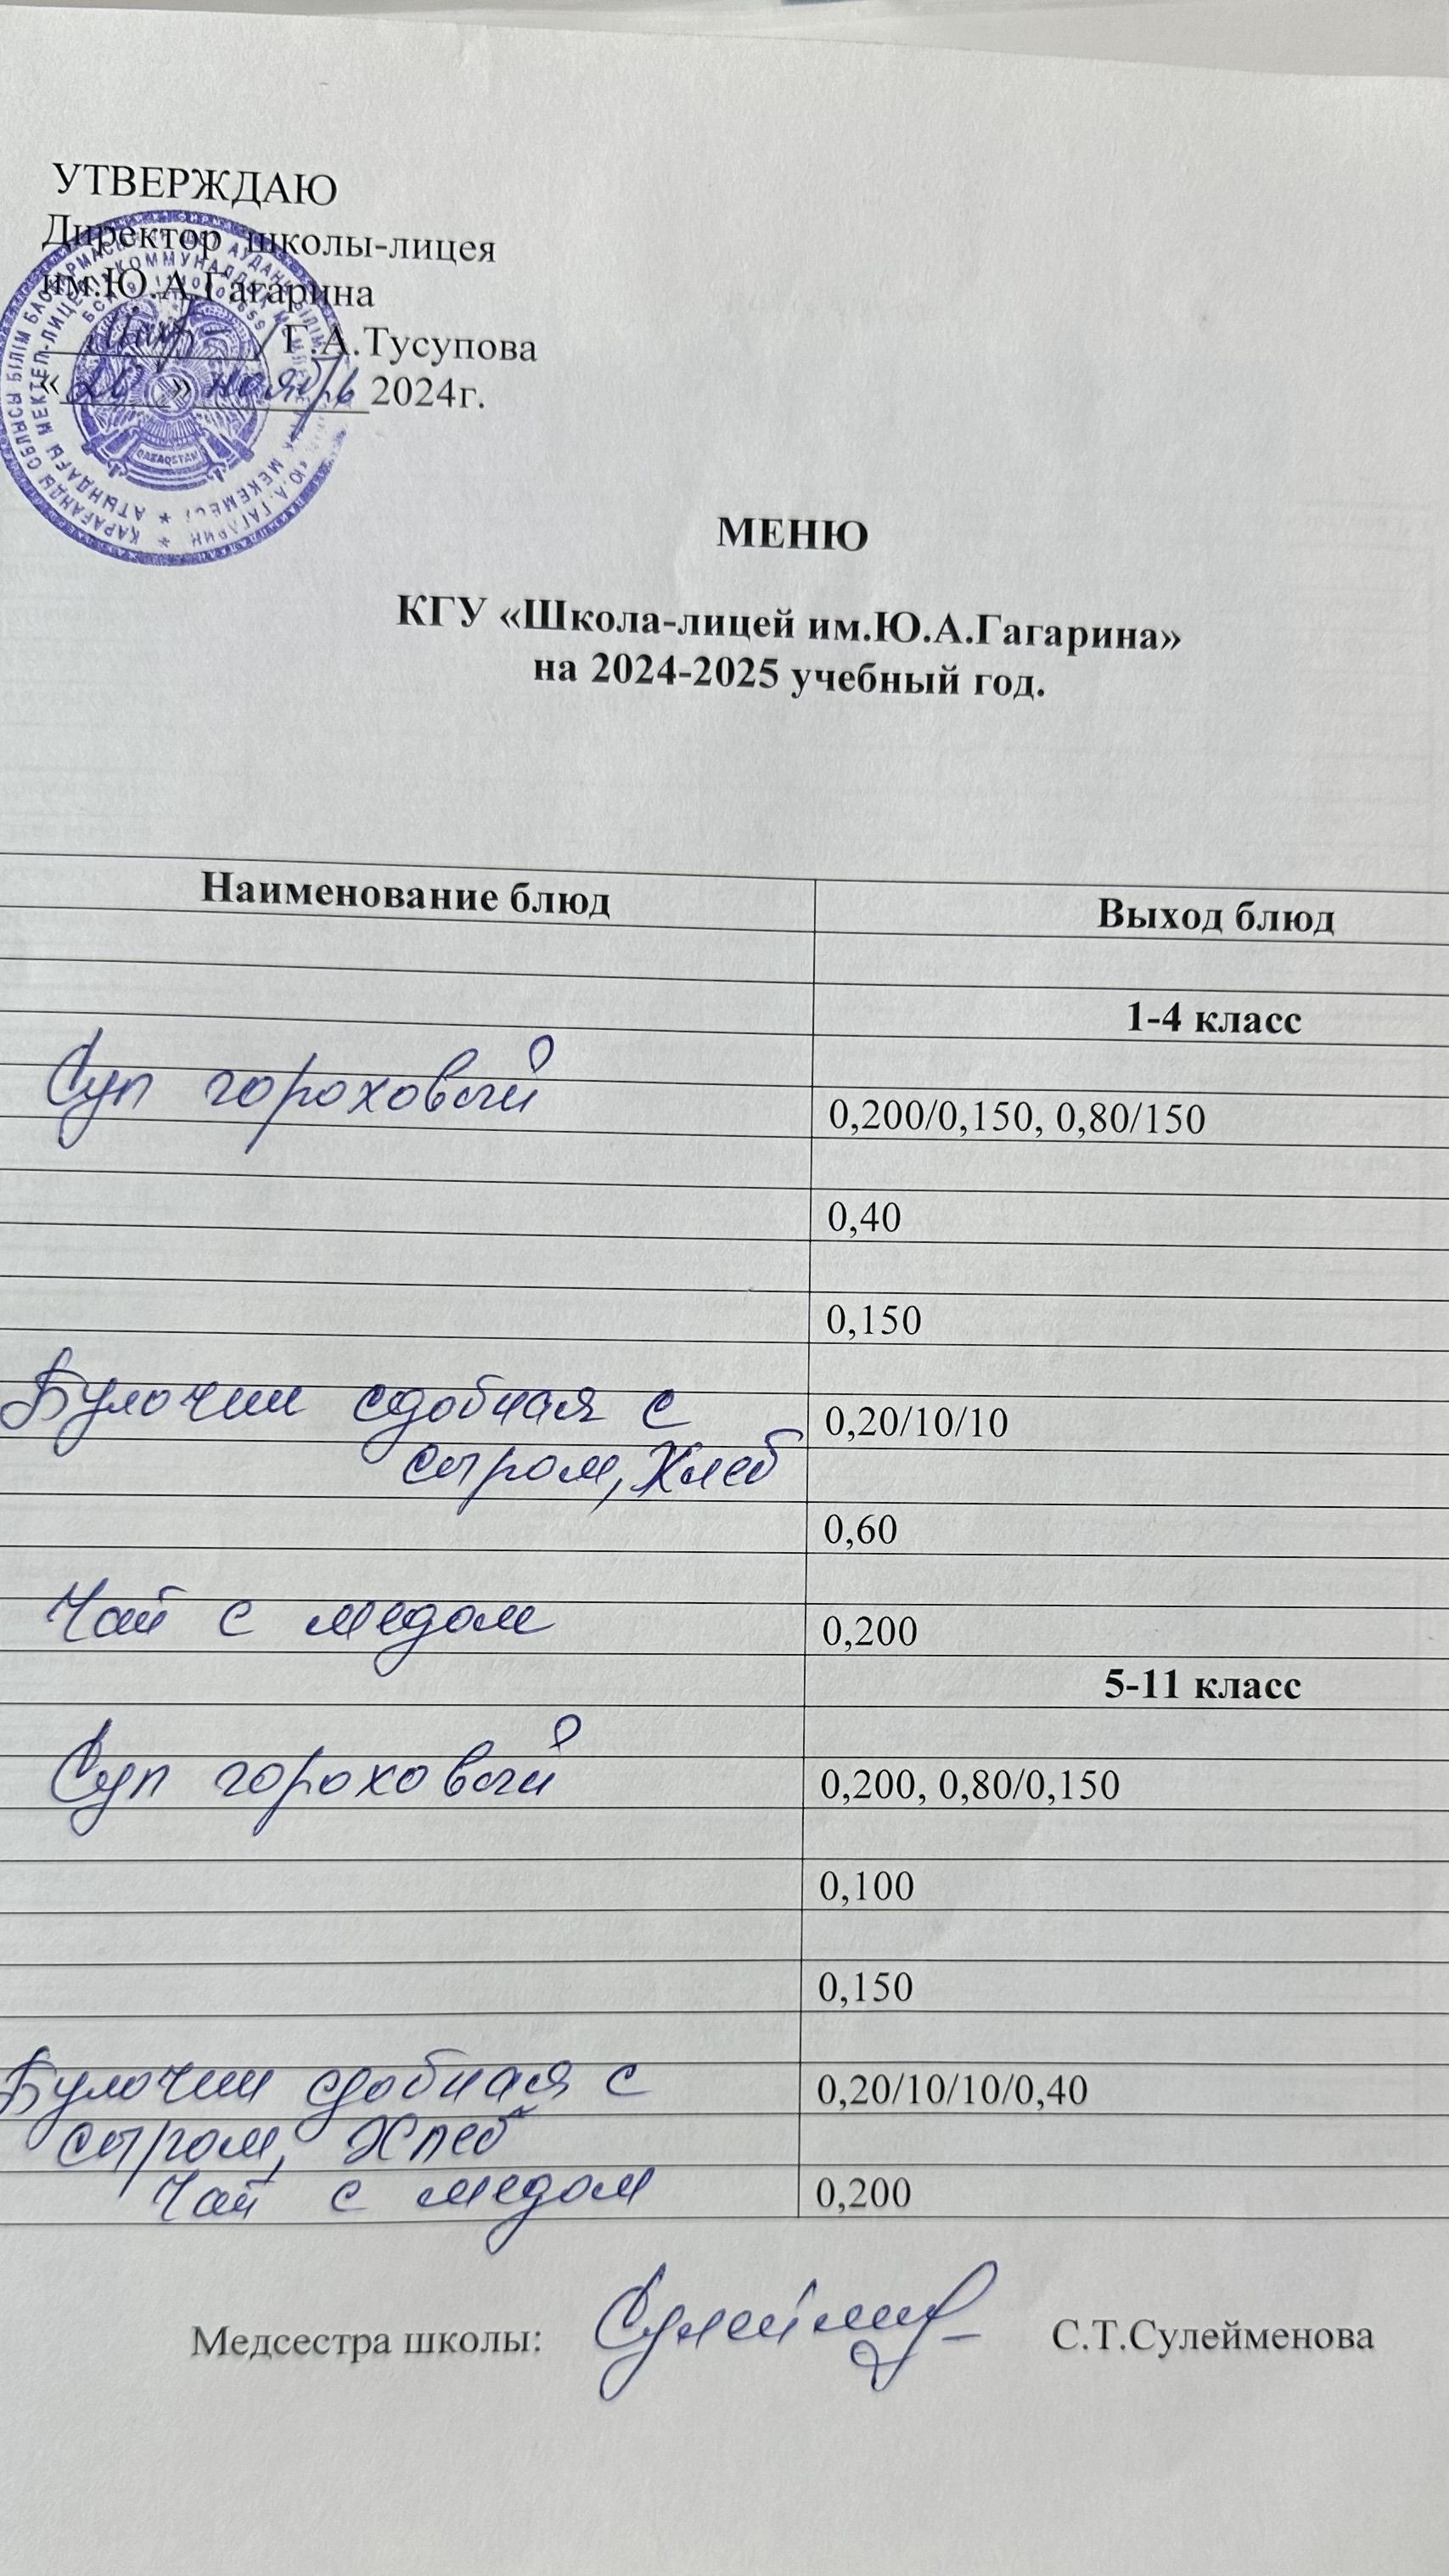 УТВЕРЖДАЮ
Директор школы-лицея
им.Ю.А.Гагарина
Г.А.Тусупова
« » ноябрь 2024г.
QAZAQSTAN
МЕНЮ
КГУ «Школа-лицей им.Ю.А.Гагарина»
на 2024-2025 учебный год.
Наименование блюд Выход блюд
1-4 класс
Суп гороховый 0,200/0,150, 0,80/150
0,40
0,150
Булочки сдобная с 0,20/10/10
сыром, Хлеб
0,60
Чай с медом 0,200
5-11 класс
Суп гороховый 0,200, 0,80/0,150
0,100
0,150
Булочки сдобная с 0,20/10/10/0,40
сыром, Хлеб
Чай с медом 0,200
Медсестра школы: С.Т.Сулейменова